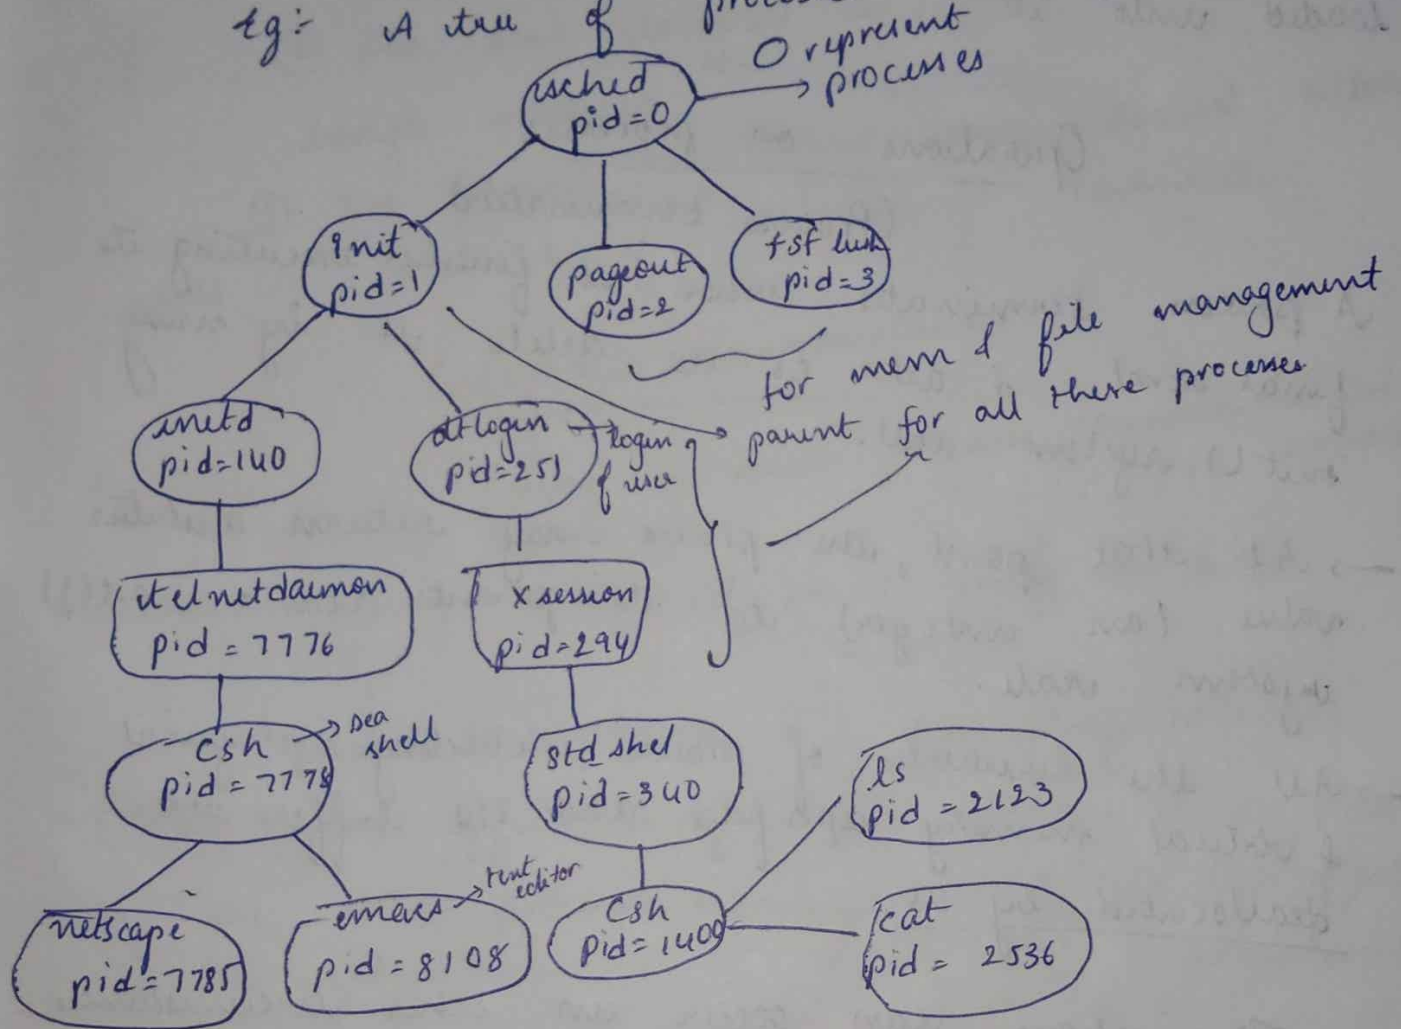 Eg:- A tree of
O represent
processes
sched
pid=0
init
pid=1
pageout
pid=2
fsflush
pid=3
for mem & file management
parent for all these processes
inetd
pid=140
dtlogin
pid=251
login
of user
telnetdaemon
pid = 7776
Xsession
pid=294
Csh
pid=7778
shell
std_shel
pid=340
ls
pid = 2123
netscape
pid=7785
emacs
pid = 8108
text
editor
Csh
pid=1400
cat
pid = 2536